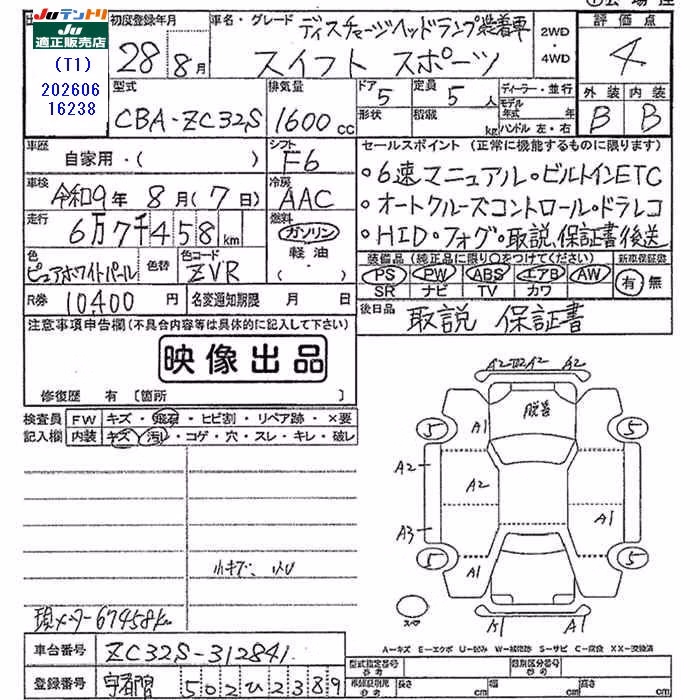 Juテントリ
JU
適正販売店
(T1)
202606
16238
初度登録年月
28年 8月
車名・グレード
ディスチャージヘッドランプ装着車
スイフト スポーツ
2WD
・
4WD
評価点
4
型式
CBA-ZC32S
排気量
1600 cc
ドア 5
形状
定員 5 人
積載 kg
ディーラー・並行
モデル年式 年
ハンドル 左・右
外装 内装
B B
車歴
自家用・( )
シフト
F6
車検
令和9年 8月(7日)
冷房
AAC
走行
6万7千458km
燃料
ガソリン
軽油
( )
色
ピュアホワイトパール
色替
色コード
ZVR
R券 10,400 円
名変通知期限 月 日
セールスポイント (正常に機能するものに限ります)
・6速マニュアル・ビルトインETC
・オートクルーズコントロール・ドラレコ
・HID・フォグ・取説、保証書後送
装備品(純正品に限り○をつけてください)
新車保証書
PS PW ABS エアB AW
SR ナビ TV カワ
有・無
後日品
取説 保証書
注意事項申告欄(不具合内容等は具体的に記入して下さい)
映像出品
修復歴 有〔箇所 〕
検査員記入欄
FW キズ・飛石・ヒビ割・リペア跡・×要
内装 キズ・汚れ・コゲ・穴・スレ・キレ・破レ
小キズ、小U
現メーター67458km
車台番号 ZC32S-312841
登録番号 宇都宮 502ひ2389
A2 A2 A2
脱着
5 A1 5
A2
A2
A3 A1
5 A1 5
スペア
A1 A1
A-キズ E-エクボ U-凹み W-補修跡 S-サビ C-腐食 XX-交換済
型式指定番号
参考
類別区分番号
参考
長さ cm 幅 cm 高さ cm